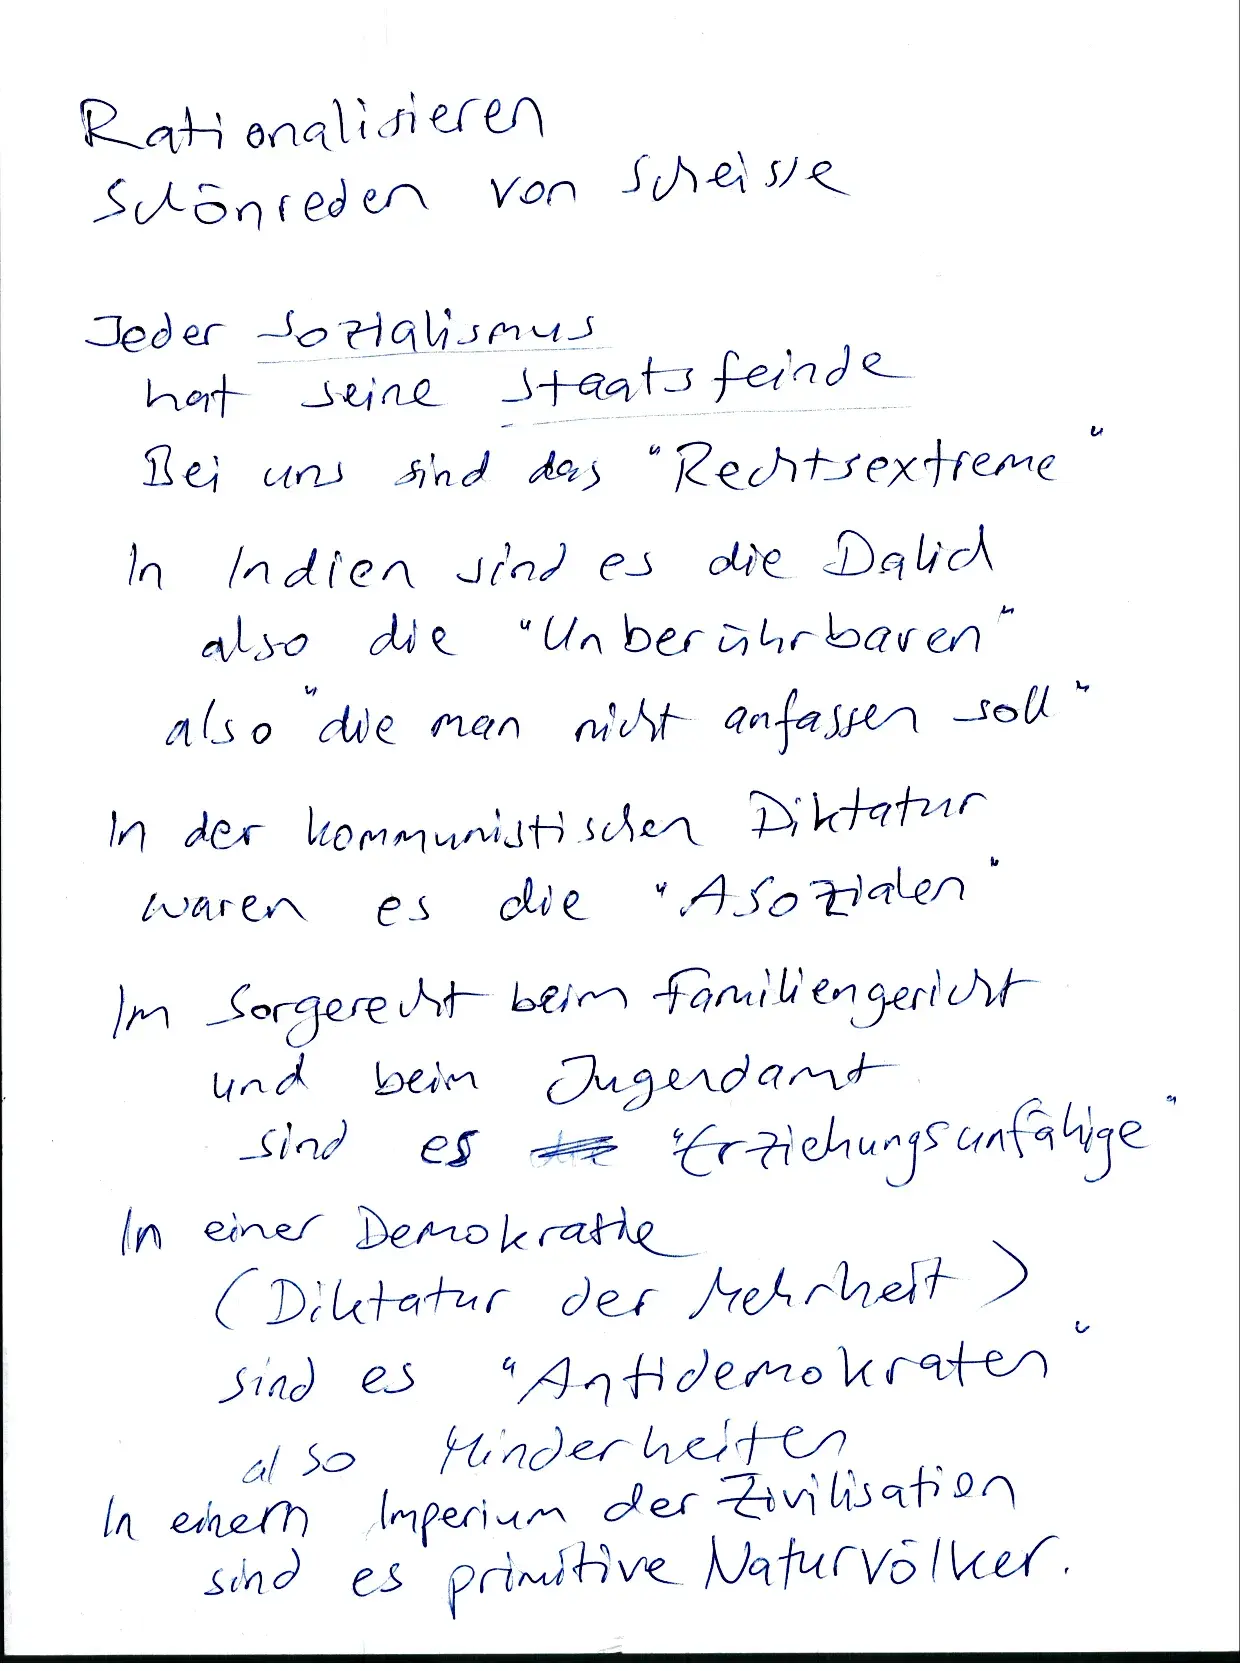 Rationalisieren
Schönreden von Scheisse
Jeder Sozialismus
hat seine Staatsfeinde
Bei uns sind das "Rechtsextreme"
In Indien sind es die Dalid
also die "Unberührbaren"
also "die man nicht anfassen soll"
In der kommunistischen Diktatur
waren es die "Asozialen"
Im Sorgerecht beim Familiengericht
und beim Jugendamt
sind es "Erziehungsunfähige"
In einer Demokratie
(Diktatur der Mehrheit)
sind es "Antidemokraten"
also Minderheiten
In einem Imperium der Zivilisation
sind es primitive Naturvölker.